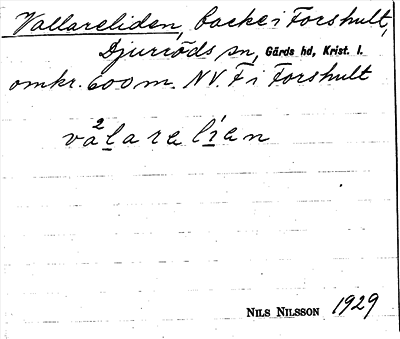 Vallareliden, backe i Forshult,
Djurröds sn, Gärds hd, Krist. l.
omkr. 600 m. NV. F i Forshult
va²larelíen
NILS NILSSON 1929